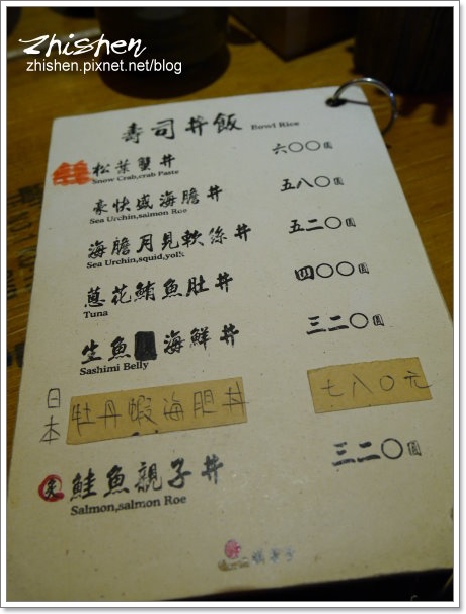 Zhishen
zhishen.pixnet.net/blog
壽司丼飯 Bowl Rice
松葉蟹丼 六〇〇圓
Snow Crab,crab Paste
豪快盛海膽丼 五八〇圓
Sea Urchin,salmon Roe
海膽月見軟絲丼 五二〇圓
Sea Urchin,squid,yolk
蔥花鮪魚肚丼 四〇〇圓
Tuna
生魚海鮮丼 三二〇圓
Sashimi Belly
日本 牡丹蝦海胆丼 七八〇元
炙 鮭魚親子丼 三二〇圓
Salmon,salmon Roe